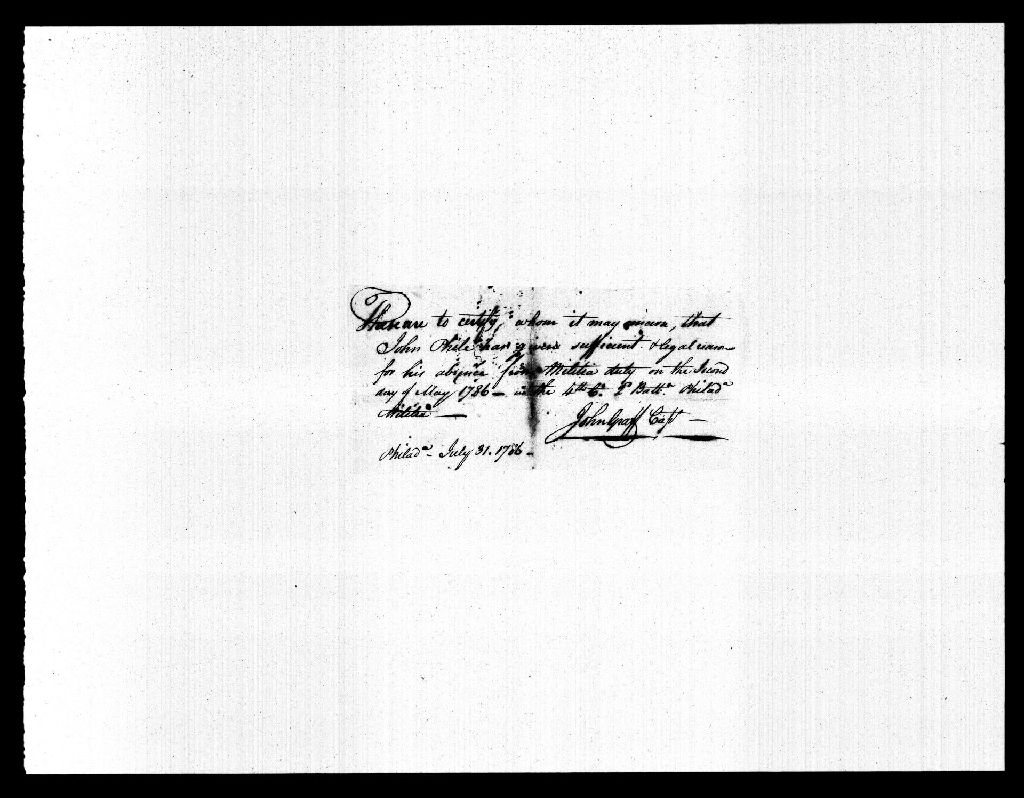 These are to certify, whom it may concern, that
John Phile has given sufficient & legal reason
for his absence from Militia duty on the Second
day of May 1786 — in the 4th Co. 2d Battn. Philada
Militia —
John Graff Capt —
Philada. July 31. 1786 —